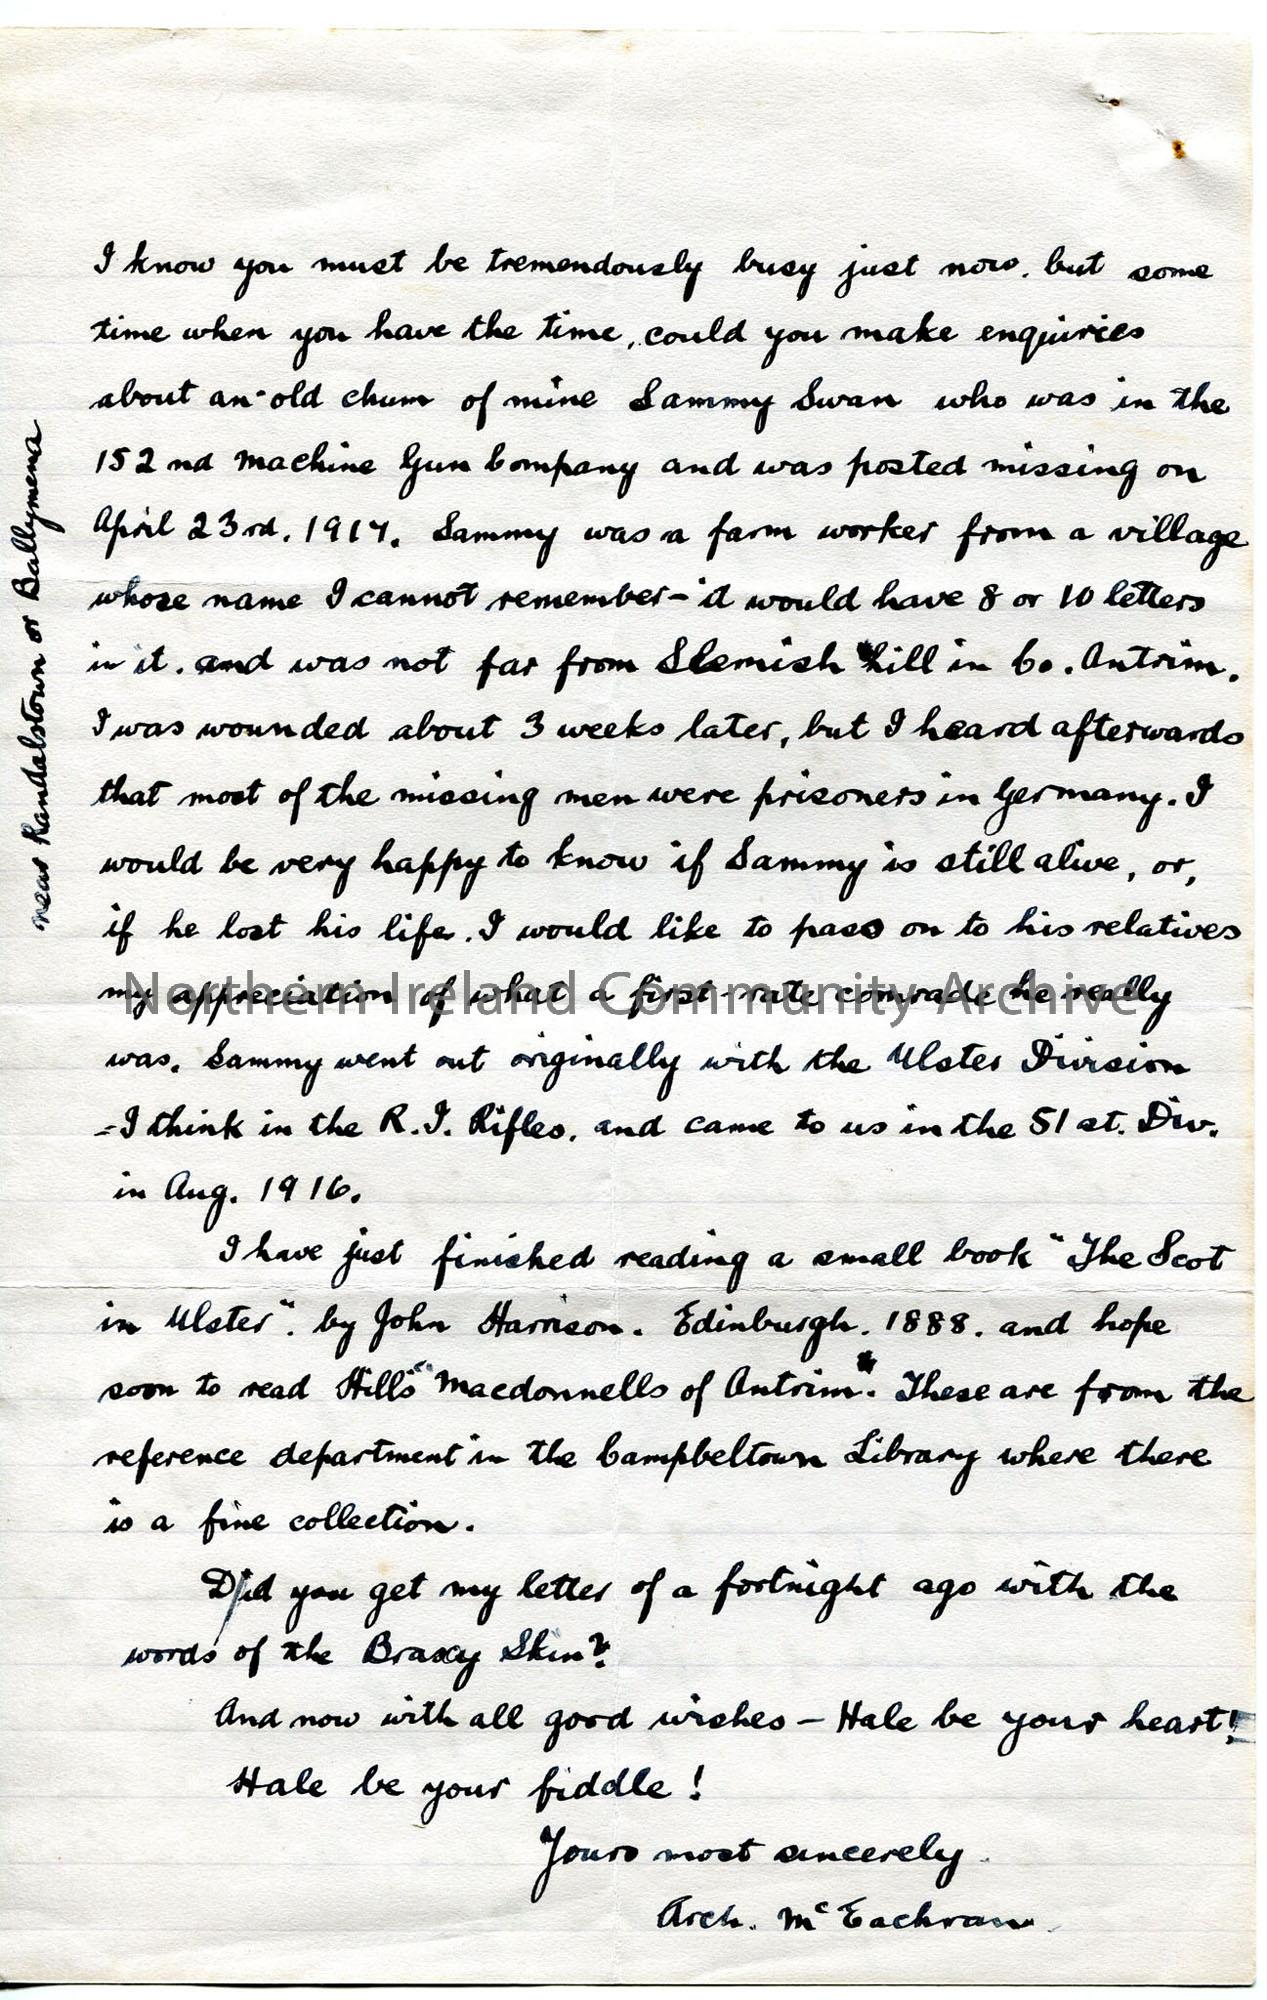 I know you must be tremendously busy just now. but some
time when you have the time, could you make enquiries
about an old chum of mine Sammy Swan who was in the
152nd Machine Gun Company and was posted missing on
April 23rd. 1917. Sammy was a farm worker from a village
whose name I cannot remember - it would have 8 or 10 letters
in it. and was not far from Slemish hill in Co. Antrim.
I was wounded about 3 weeks later, but I heard afterwards
that most of the missing men were prisoners in Germany. I
would be very happy to know if Sammy is still alive, or,
if he lost his life. I would like to pass on to his relatives
my appreciation of what a first-rate comrade he really
was. Sammy went out originally with the Ulster Division
- I think in the R.I. Rifles. and came to us in the 51st. Div.
in Aug. 1916.
I have just finished reading a small book "The Scot
in Ulster". by John Harrison. Edinburgh. 1888. and hope
soon to read Hill's "Macdonnells of Antrim". These are from the
reference department in the Campbeltown Library where there
is a fine collection.
Did you get my letter of a fortnight ago with the
words of the Braxy Skin?
And now with all good wishes - Hale be your heart!
Hale be your fiddle!
Yours most sincerely.
Arch. McEachran.
near Randalstown or Ballymena
Northern Ireland Community Archive